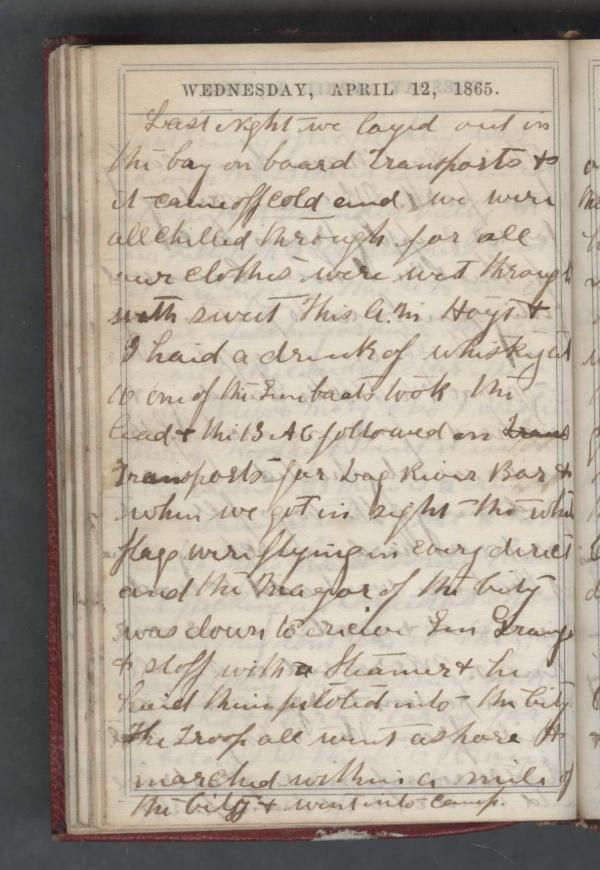 WEDNESDAY, APRIL 12, 1865.
Last night we layed out in
the bay on board transports &
it came off cold and we were
all chilled through for all
our clothes were wet through
with sweat This A.M. Hoyt &
I haid a drink of whisky at
10 one of the Gunboats took the
lead & the 13 AC followed on Trans
Transports for Dog River Bar &
when we got in sight the whit
flags were flying in every direct
and the Mayor of the City
was down to recieve Gen Grange
& staff with a Steamer & he
haid them piloted into the City
The Troop all went ashore &
marched within a mile of
the City & went into camp.